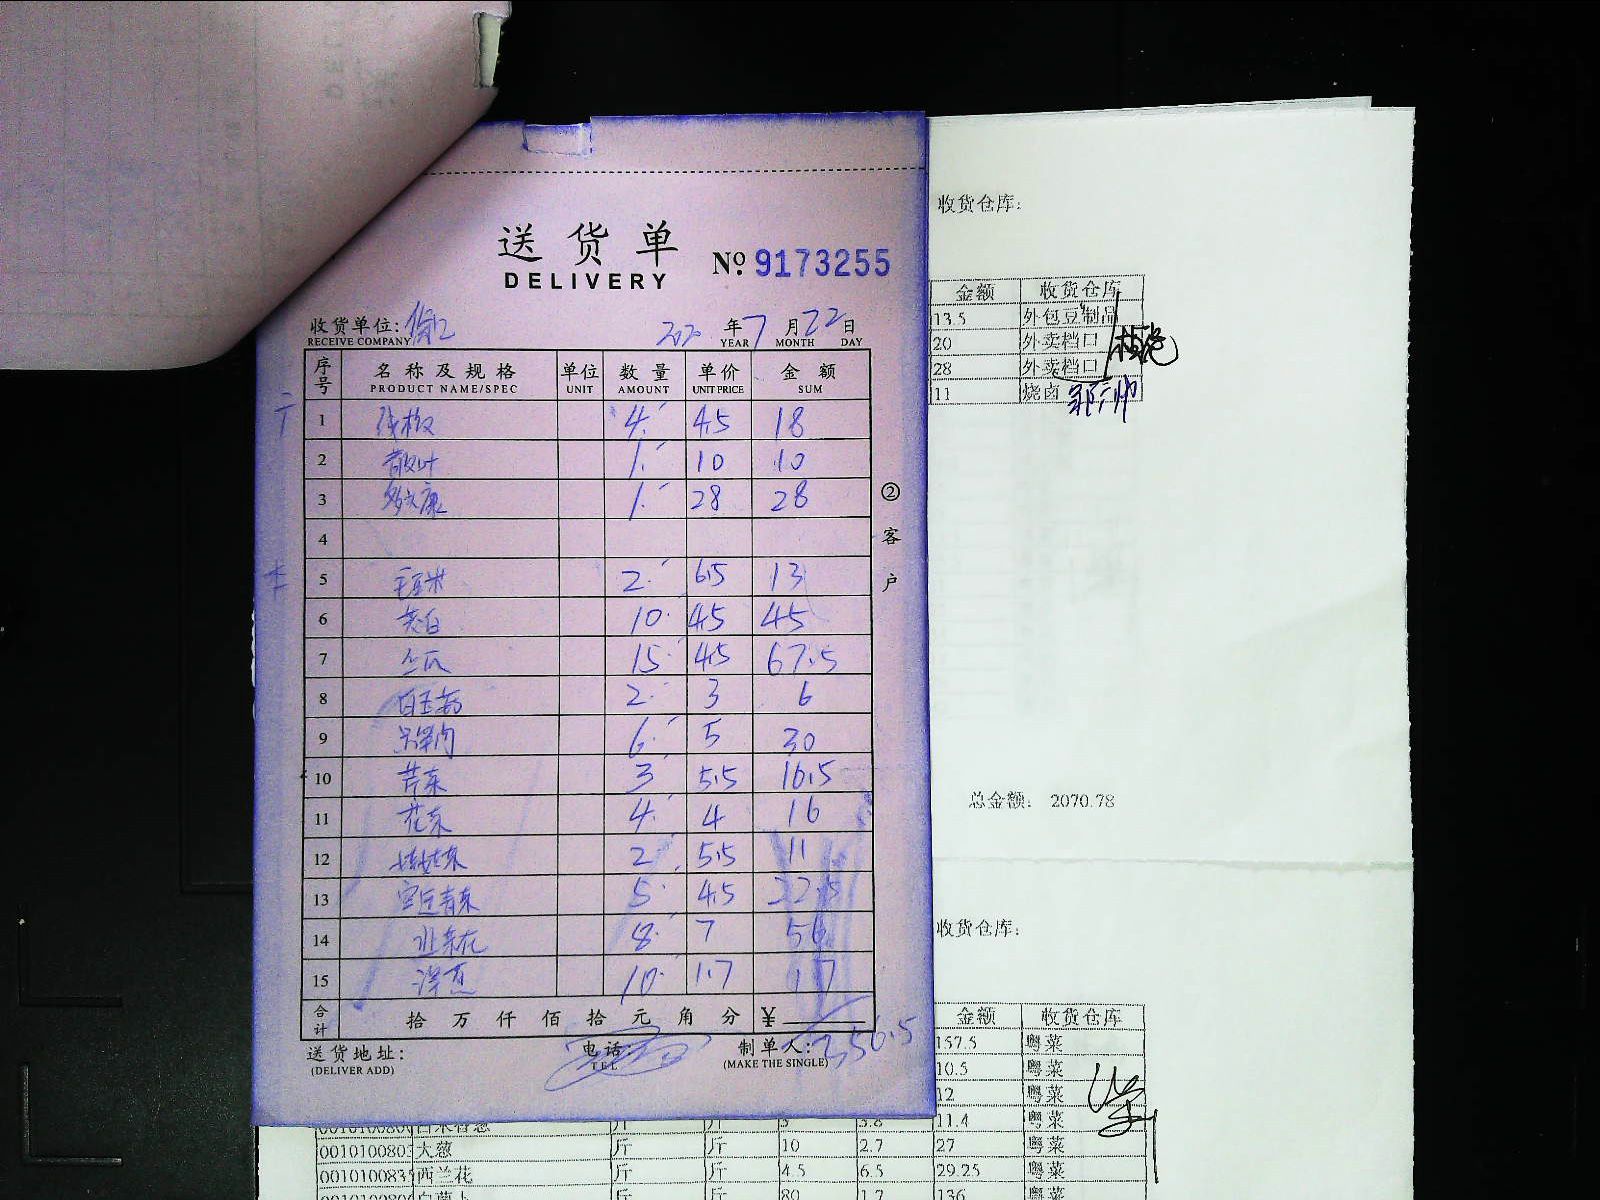 送货单
DELIVERY
№ 9173255
收货单位:
RECEIVE COMPANY
2020 年 7 月 22 日
YEAR MONTH DAY
序号 名称及规格 单位 数量 单价 金额
PRODUCT NAME/SPEC UNIT AMOUNT UNIT PRICE SUM
1 线椒 4. 4.5 18
2 散叶 1. 10 10
3 1. 28 28
4
5 毛豆米 2. 6.5 13
6 茭白 10. 4.5 45
7 丝瓜 15. 4.5 67.5
8 白玉菇 2. 3 6
9 6. 5 30
10 芹菜 3 5.5 16.5
11 花菜 4. 4 16
12 2 5.5 11
13 5. 4.5 22.5
14 韭菜花 8. 7 56
15 洋葱 10. 1.7 17
合计 拾 万 仟 佰 拾 元 角 分 ¥
356.5
送货地址:
(DELIVER ADD)
电话:
TEL
制单人:
(MAKE THE SINGLE)
② 客户
收货仓库:
金额 收货仓库
13.5 外包豆制品
20 外卖档口
28 外卖档口
11 烧卤
总金额: 2070.78
收货仓库:
金额 收货仓库
157.5 粤菜
10.5 粤菜
12 粤菜
斤 斤 3 3.8 11.4 粤菜
大葱 斤 斤 10 2.7 27 粤菜
西兰花 斤 斤 4.5 6.5 29.25 粤菜
白萝卜 斤 斤 80 1.7 136 粤菜